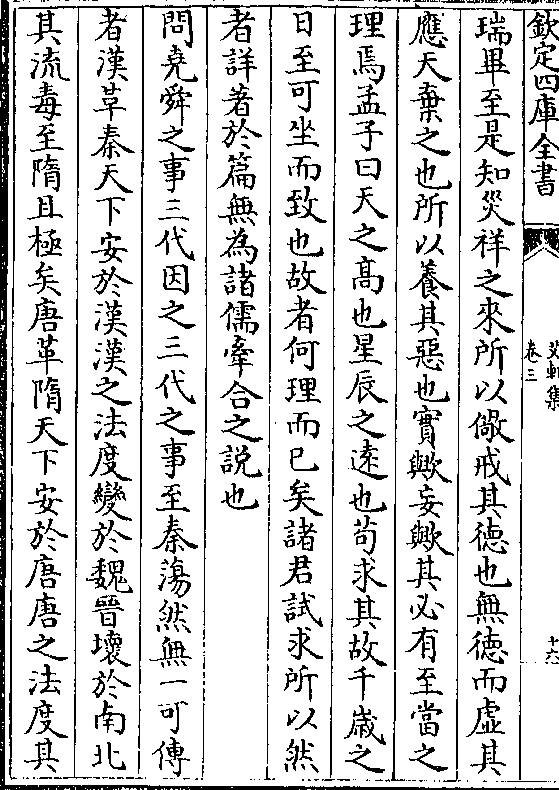 欽定四庫全書
艾軒集
卷三
十六
瑞畢至是知災祥之來所以儆戒其德也無德而虛其
應天棄之也所以養其惡也實歟妄歟其必有至當之
理焉孟子曰天之髙也星辰之逺也茍求其故千嵗之
日至可坐而致也故者何理而已矣諸君試求所以然
者詳著於篇無為諸儒牽合之説也
問堯舜之事三代因之三代之事至秦蕩然無一可傳
者漢革秦天下安於漢漢之法度變於魏晉壞於南北
其流毒至隋且極矣唐革隋天下安於唐唐之法度其